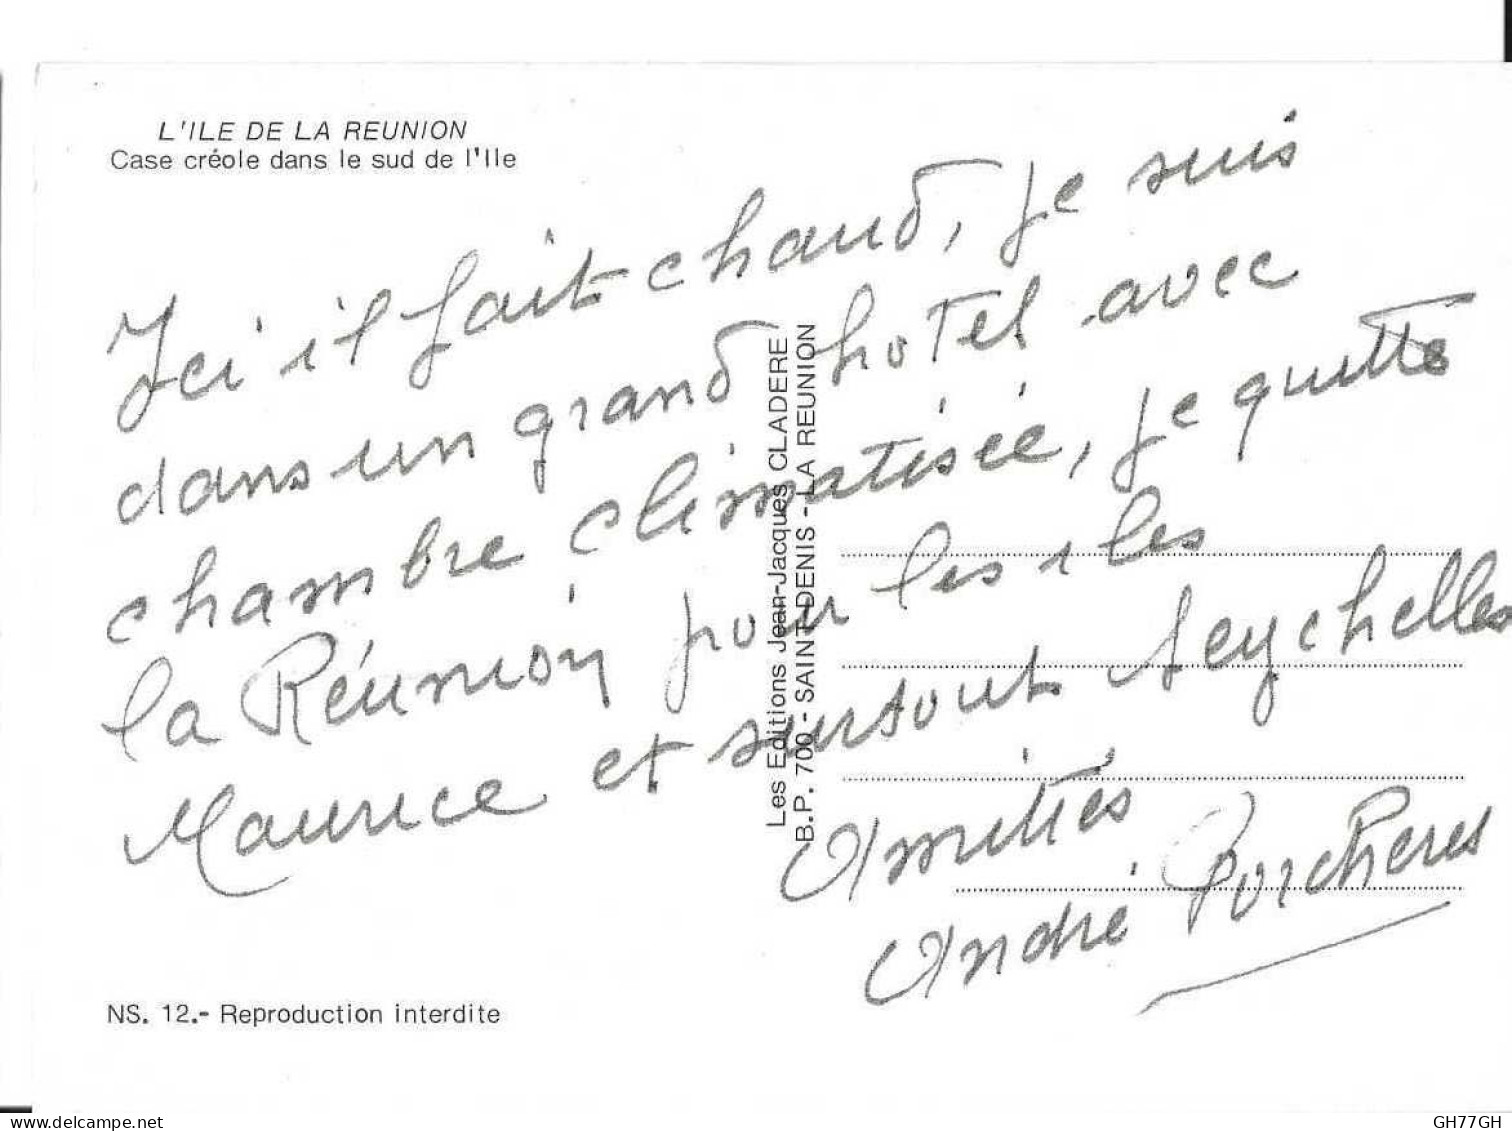 L'ILE DE LA REUNION
Case créole dans le sud de l'Ile
Ici il fait chaud, je suis
dans un grand hotel avec
chambre climatisée, je quitte
la Réunion pour les iles
Maurice et surtout Seychelles
Amitiés
André Porcheres
Les Editions Jean-Jacques CLADERE
B.P. 700 - SAINT-DENIS - LA REUNION
NS. 12.- Reproduction interdite
www.delcampe.net
GH77GH